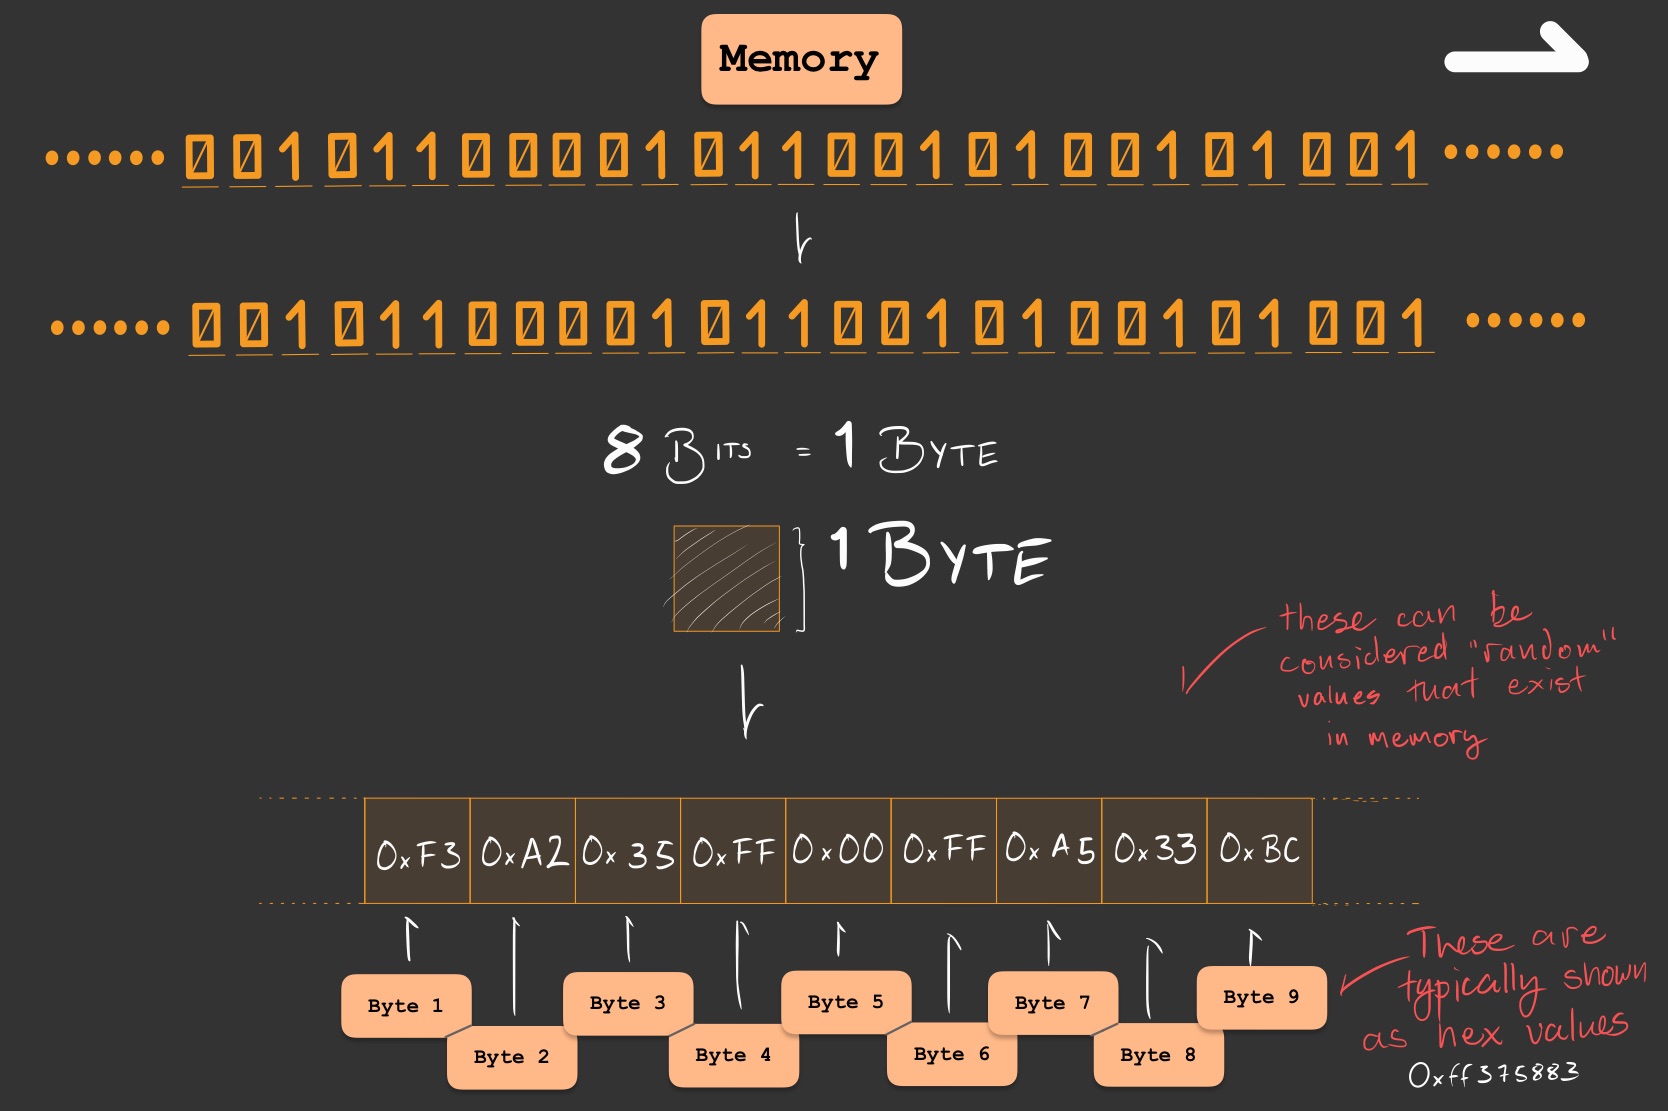 Memory
...... 0 0 1 0 1 1 0 0 0 0 1 0 1 1 0 0 1 0 1 0 0 1 0 1 0 0 1 ......
...... 0 0 1 0 1 1 0 0 0 0 1 0 1 1 0 0 1 0 1 0 0 1 0 1 0 0 1 ......
8 BITS = 1 BYTE
1 BYTE
these can be
considered "random"
values that exist
in memory
0xF3 0xA2 0x35 0xFF 0x00 0xFF 0xA5 0x33 0xBC
Byte 1 Byte 3 Byte 5 Byte 7 Byte 9
Byte 2 Byte 4 Byte 6 Byte 8
These are
typically shown
as hex values
0xff375883